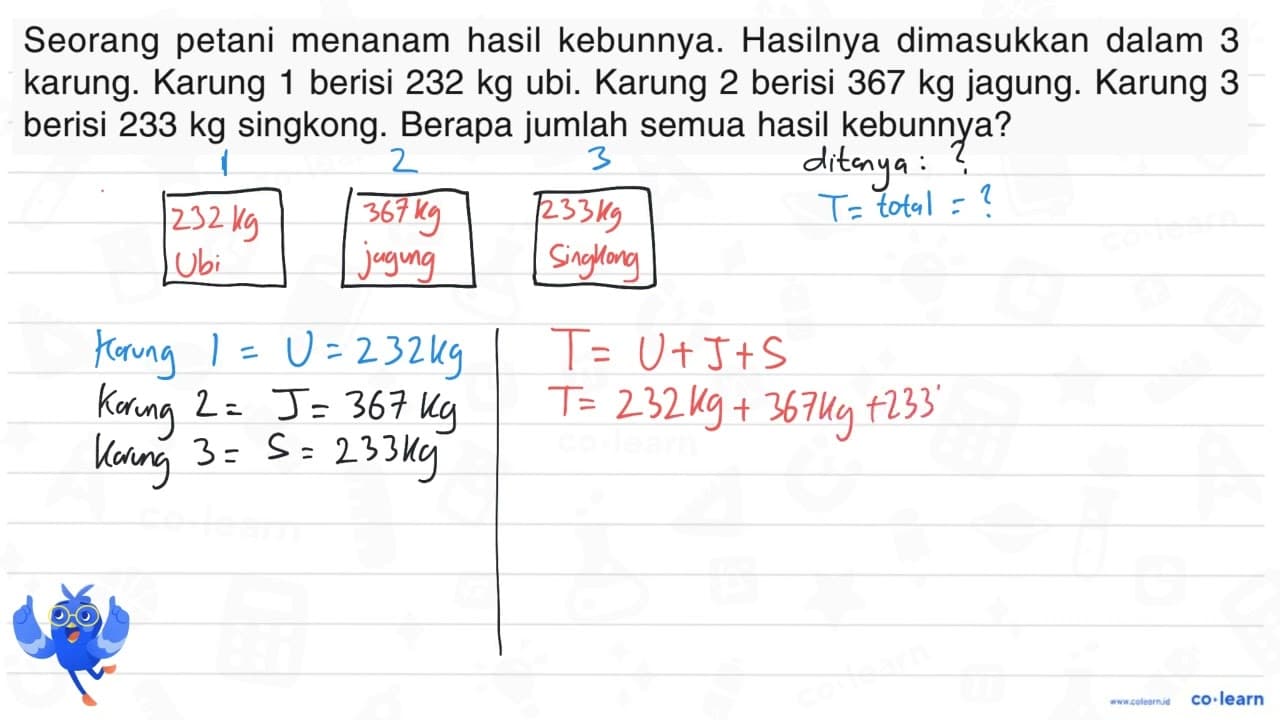 Seorang petani menanam hasil kebunnya. Hasilnya dimasukkan dalam 3
karung. Karung 1 berisi 232 kg ubi. Karung 2 berisi 367 kg jagung. Karung 3
berisi 233 kg singkong. Berapa jumlah semua hasil kebunnya?
1 2 3
ditanya : ?
T = total = ?
232 kg
Ubi
367 kg
jagung
233 kg
Singkong
Karung 1 = U = 232 kg
Karung 2 = J = 367 kg
Karung 3 = S = 233 kg
T = U + J + S
T = 232 kg + 367 kg + 233
www.colearn.id co·learn